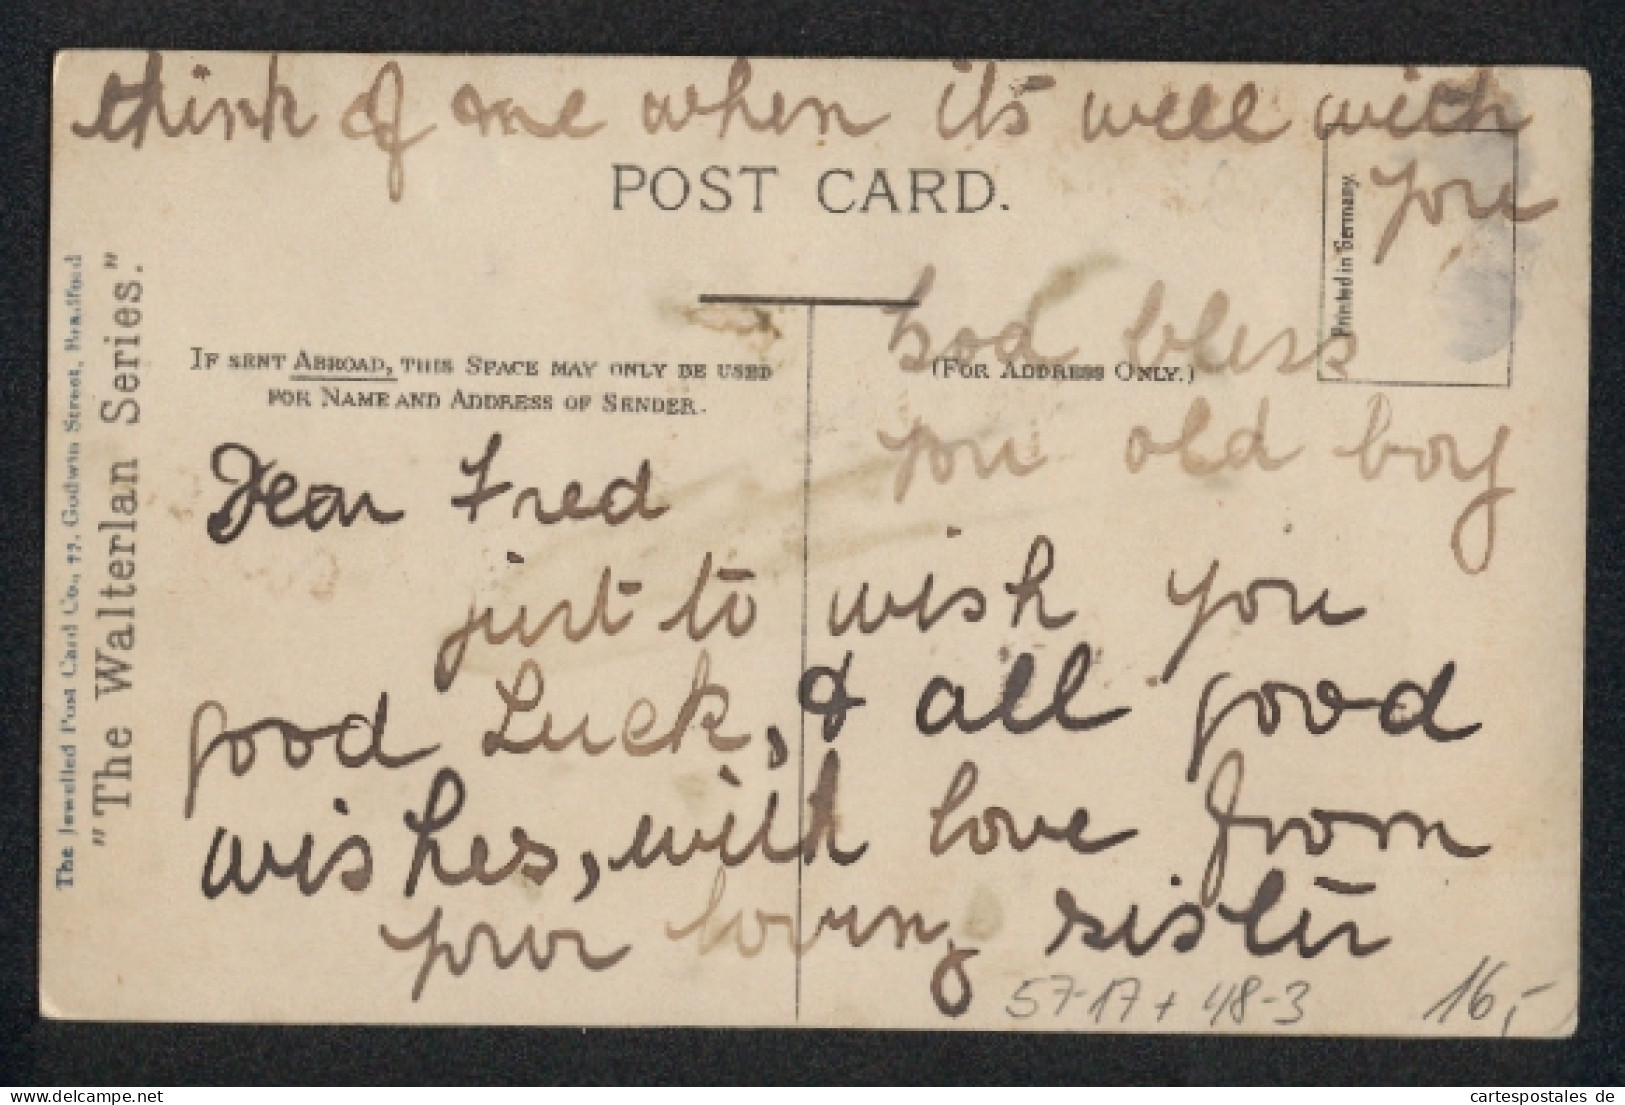 think of me when it's well with
you
POST CARD.
Printed in Germany.
God bless
you old boy
IF SENT ABROAD, THIS SPACE MAY ONLY BE USED
FOR NAME AND ADDRESS OF SENDER.
(FOR ADDRESS ONLY.)
Dear Fred
just to wish you
good Luck, & all good
wishes, with love from
your loving sister
57-17 + 48-3
16,-
The Jewelled Post Card Co., 77, Godwin Street, Bradford
"The Walterlan Series."
www.oldthing.de
cartespostales de